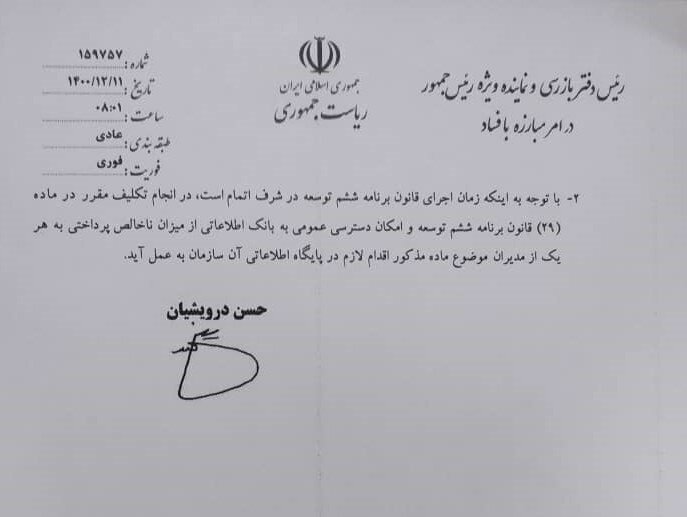 رئیس دفتر بازرسی و نماینده ویژه رئیس جمهور
در امر مبارزه با فساد
جمهوری اسلامی ایران
ریاست جمهوری
شماره: ۱۵۹۷۵۷
تاریخ: ۱۴۰۰/۱۲/۱۱
ساعت: ۰۸:۰۱
طبقه بندی: عادی
فوریت: فوری
۲- با توجه به اینکه زمان اجرای قانون برنامه ششم توسعه در شرف اتمام است، در انجام تکلیف مقرر در ماده
(۲۹) قانون برنامه ششم توسعه و امکان دسترسی عمومی به بانک اطلاعاتی از میزان ناخالص پرداختی به هر
یک از مدیران موضوع ماده مذکور اقدام لازم در پایگاه اطلاعاتی آن سازمان به عمل آید.
حسن درویشیان